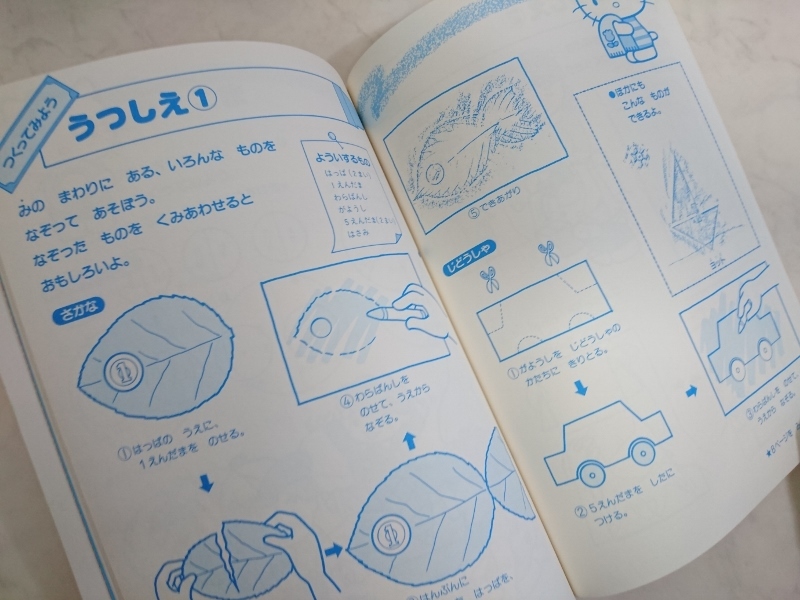 つくってみよう
うつしえ①
みの まわりに ある、いろんな ものを
なぞって あそぼう。
なぞった ものを くみあわせると
おもしろいよ。
よういするもの
はっぱ(2まい)
1えんだま
わらばんし
がようし
5えんだま(2まい)
はさみ
さかな
①はっぱの うえに、
1えんだまを のせる。
はんぶんに
はっぱを、
④わらばんしを
のせて、うえから
なぞる。
⑤できあがり
じどうしゃ
①がようしを じどうしゃの
かたちに きりとる。
②5えんだまを したに
つける。
③わらばんしを のせて、
うえから なぞる。
●ほかにも
こんな ものが
できるよ。
ヨット
★8ページを